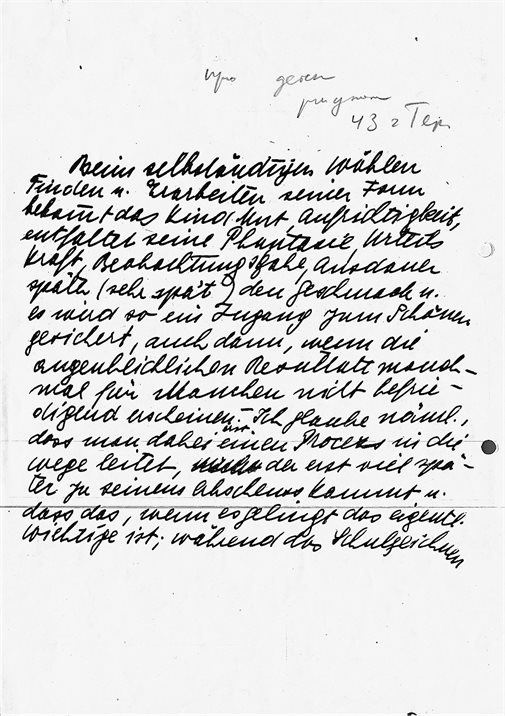 43 г Тер
Beim selbständigen Wählen
Finden u. Erarbeiten seiner Form
bekomt das Kind Mut, Aufrichtigkeit,
entfaltet seine Phantasie, Urteils
kraft, Beobachtungsgabe, Ausdauer
später (sehr spät) den Geschmack u.
es wird so ein Zugang zum Schönen
gesichert, auch dann, wenn die
augenblicklichen Resultate manch-
mal für Manchen nicht befrie-
digend erscheinen. – Ich glaube näml.,
dass man dabei einen Process in die
wege leitet, der erst viel spä-
ter zu seinem Abschluss kommt u.
dass das, wenn es gelingt das eigentl.
wichtige ist; während das Schulzeichnen